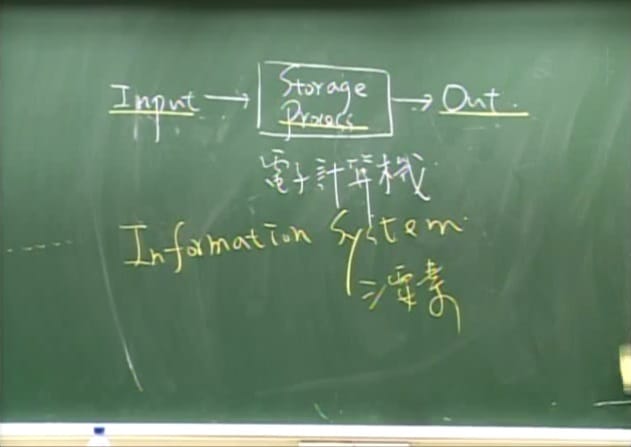 Input → Storage → Out.
Process
電子計算機
Information System
三要素